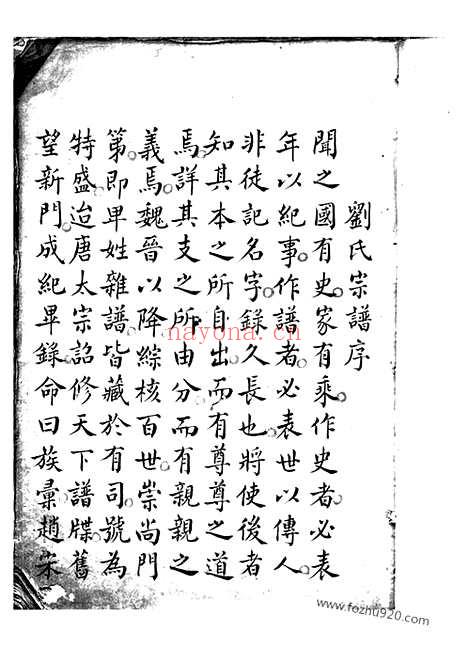 劉氏宗譜序
聞之國有史。家有乘。作史者必表
年以紀事。作譜者必表世以傳人。
非徒記名字。錄久長也。將使後者
知其本之所自出。而有尊尊之道
焉。詳其支之所由分。而有親親之
義焉。魏晉以降。綜核百世。崇尚門
第。即卑姓雜譜。皆藏於有司。號為
特盛。迨唐太宗詔修天下譜牒。舊
望新門。成紀畢錄。命曰族彙。趙宋
nayona.cn
www.fozhu920.com